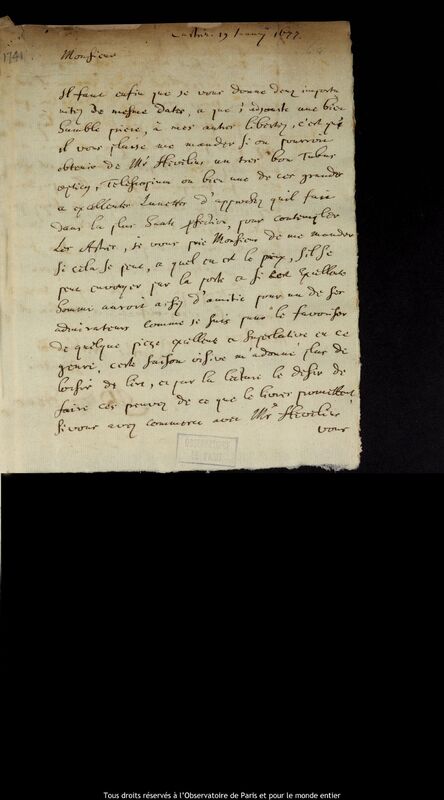 19 1677
1741
Monsieur
Il faut enfin que je vous donne deux importu
nitez de mesme date, a que j'adjouste une bien
humble priere, à mes autres libertez, c'est qu'
il vous plaise me mander si on pourroit
obtenir de Mr Hevelius un tres bon Tubus
opticus, Telescopium ou bien une de ces grandes
a excellentes Lunettes d'approches qu'il fait
dans la plus haute perfection, pour contempler
Les Astres, je vous prie Monsieur de me mander
si cela se peut, a quel en est le prix, s'il se
peut envoyer par la poste a si cet Excellent
homme auroit assez d'amitié pour un de ses
admirateurs comme je suis pour le favoriser
de quelque piece excellente a superlative en ce
genre, cette saison m'a donné plus de
loisir de lire, et par la lecture le desir de
faire ces de ce que le livre
si vous avez commerce avec Mr Hevelius
vous
OBSERVATOIRE
DE PARIS
Tous droits réservés à l'Observatoire de Paris et pour le monde entier